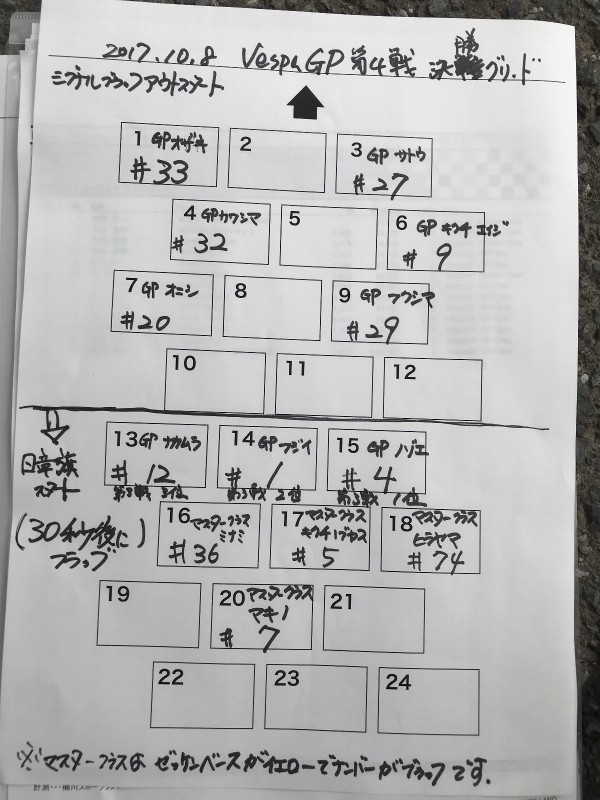 2017.10.8 Vespa GP 第4戦 決勝グリッド
シグナルブラックアウトスタート
1 GPオザキ 2 3 GPサトウ
#33 #27
4 GPカワシマ 5 6 GPキクチ エイジ
#32 #9
7 GPオニシ 8 9 GP フクシマ
#20 #29
10 11 12
13 GPナカムラ 14 GPフジイ 15 GP ハゾエ
#12 #1 #4
第3戦 3位 第3戦 2位 第3戦 1位
日章旗
スタート
(30秒後に
フラッグ)
16 マスタークラス 17 マスタークラス 18 マスタークラス
ミナミ キクチノブヤス ヒラヤマ
#36 #5 #74
19 20 マスタークラス 21
マキノ
#7
22 23 24
※マスタークラスは ゼッケンベースがイエローでナンバーがブラックです.
計測・・・桶川スポーツランド